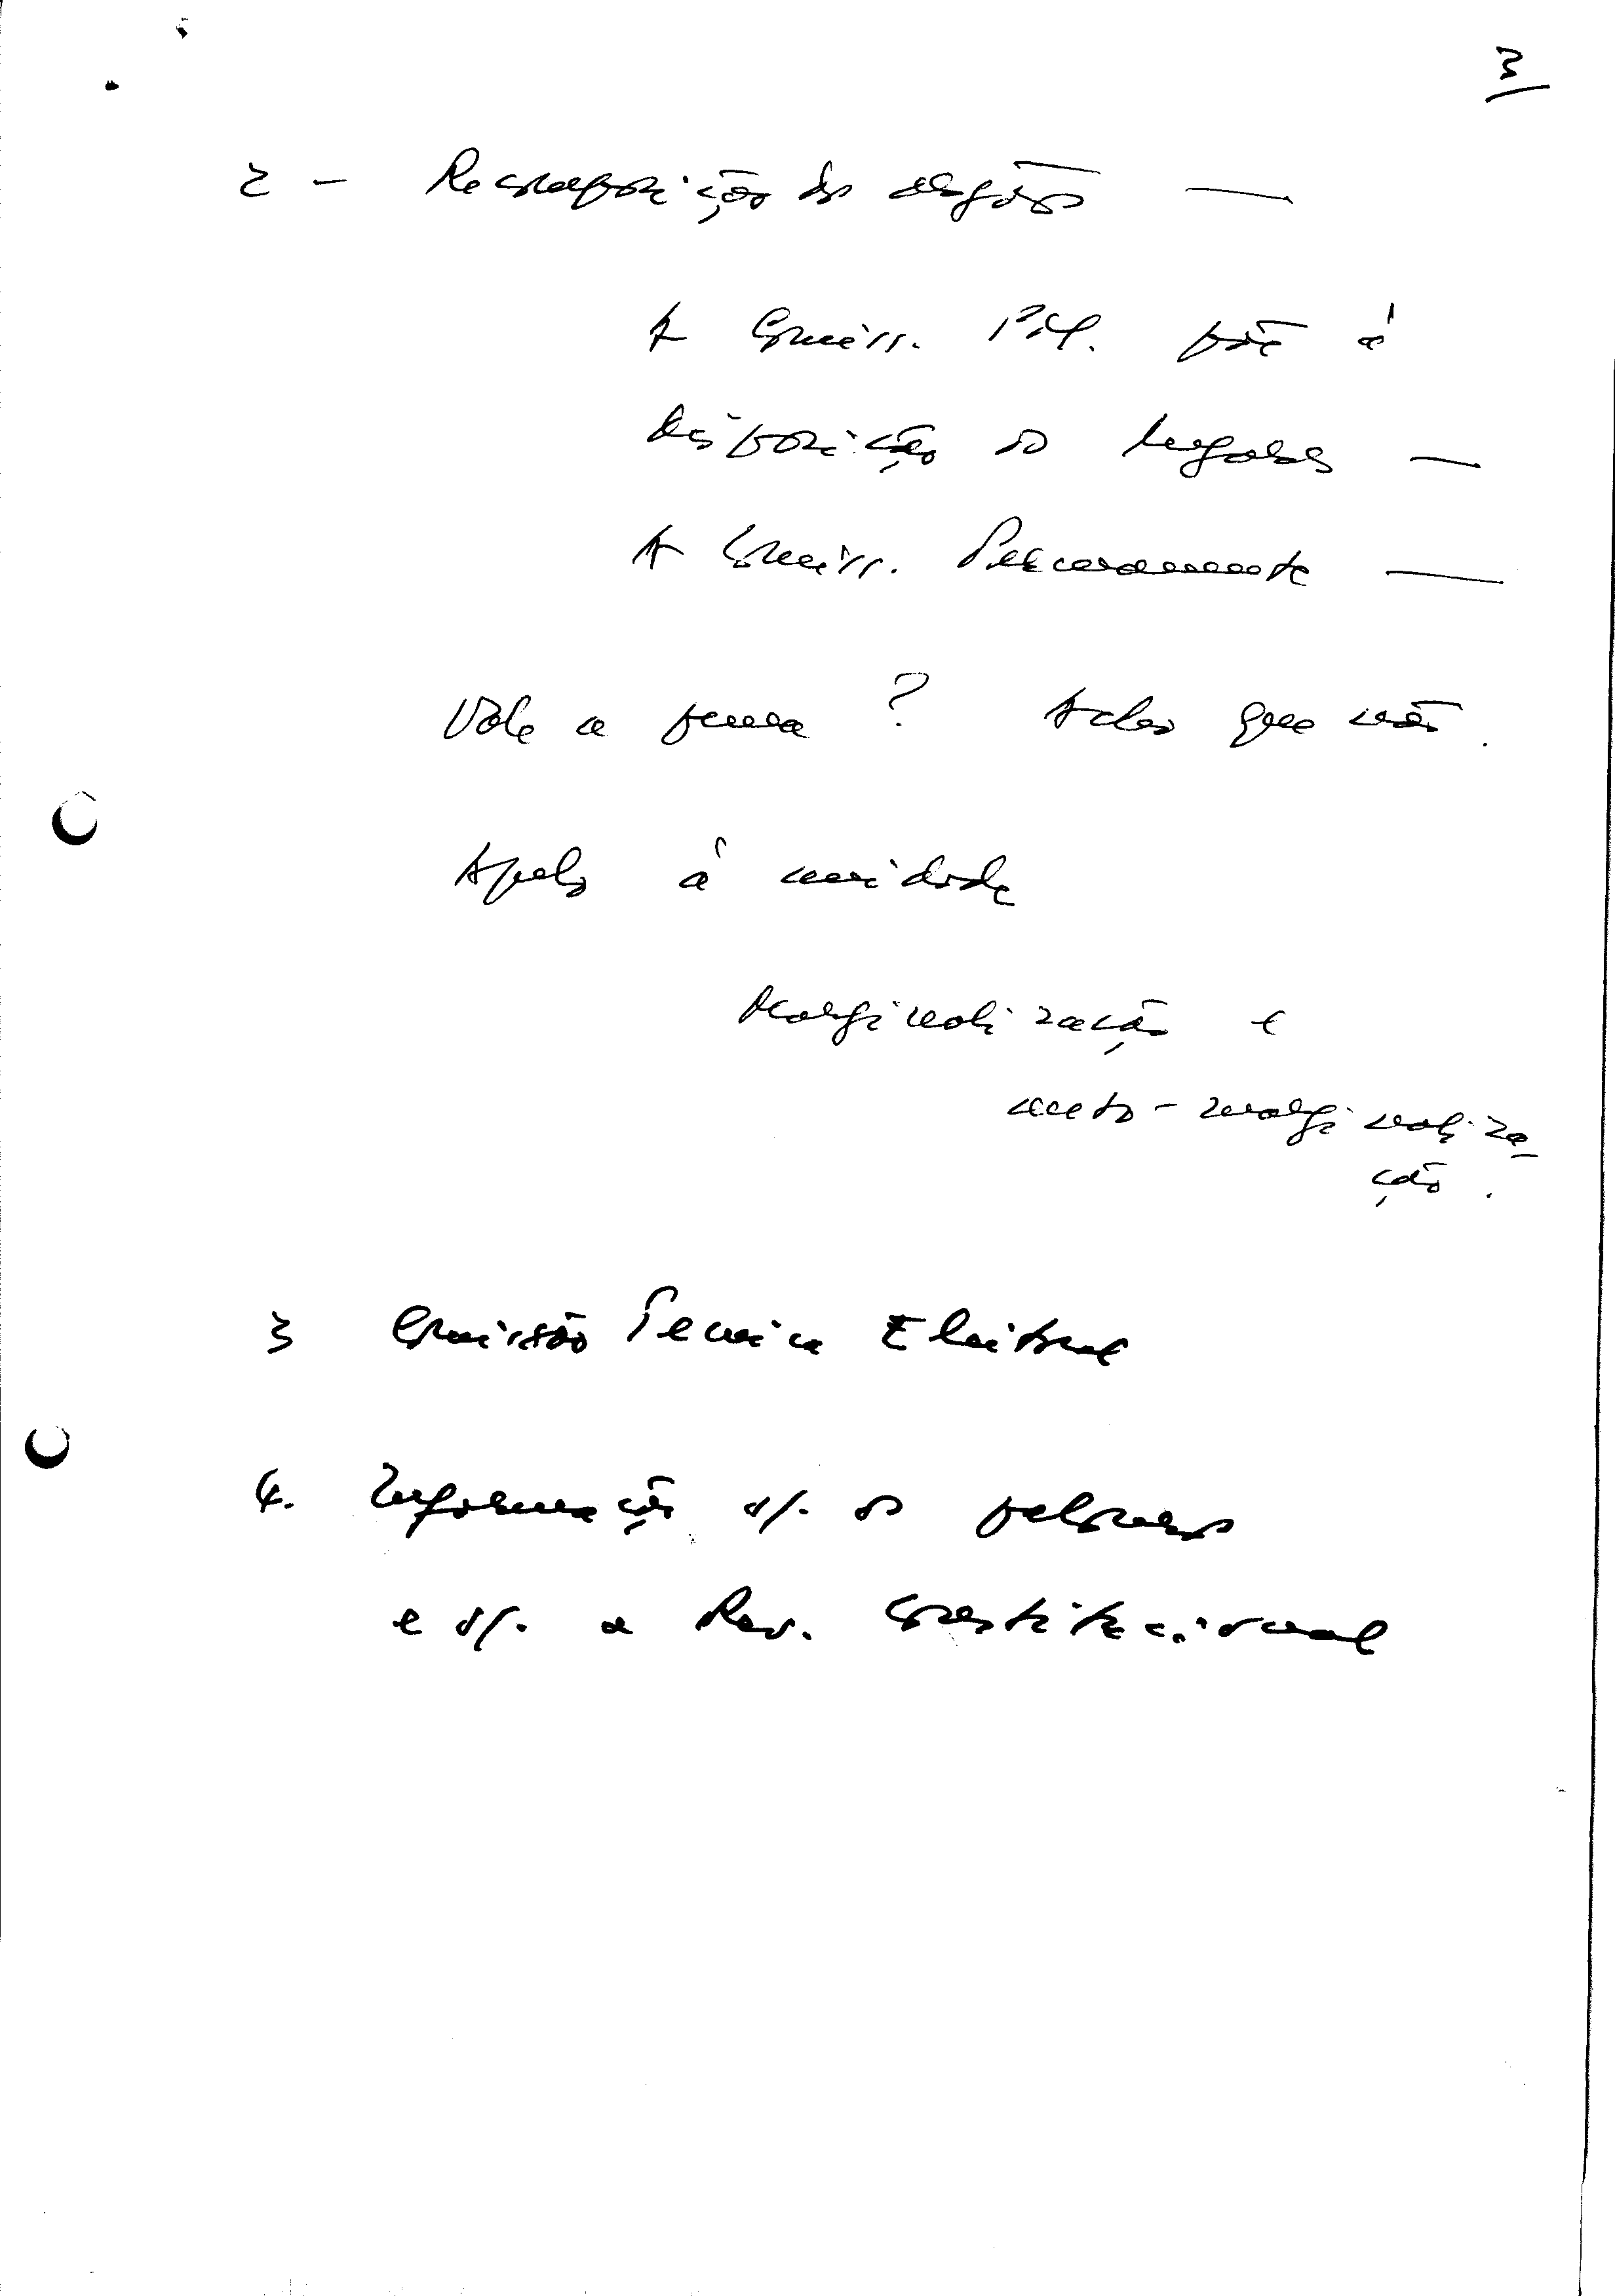 3
2 - Recomposição dos orgãos —
A Comiss. Pol. põe à
disposição os lugares —
A Comiss. Permanente —
Vale a pena? Acho que não.
Apelo à unidade
Marginalização e
auto-marginaliza-
ção.
3 Comissão Técnica Eleitoral
4. Informação s/. os
e s/. a Rev. Constitucional